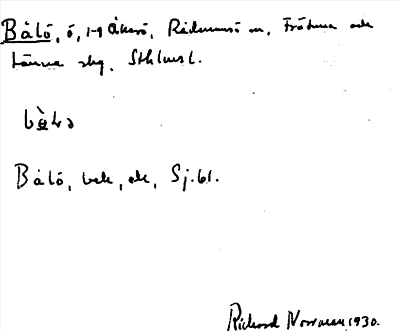 Bålö, ö, 1-9 Åkerö, Rådmansö sn, Frötuna och
Länna skg, Sthlms l.
Bålö, bek, ek, Sj.bl.
Rickard Norrman 1930.